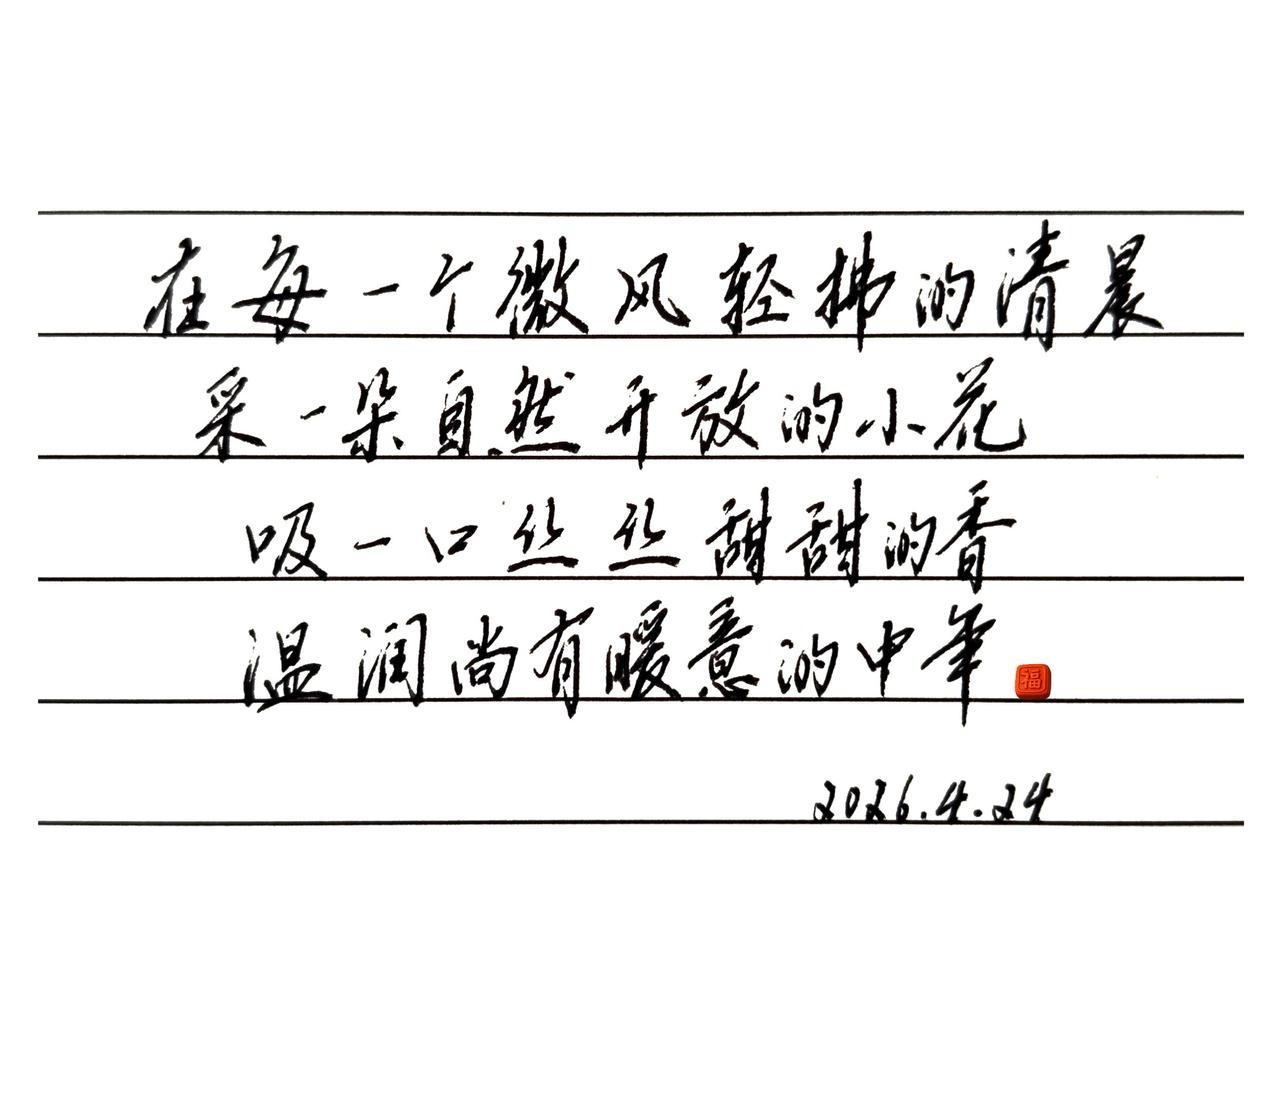 在每一个微风轻拂的清晨
采一朵自然开放的小花
吸一口丝丝甜甜的香
温润尚有暖意的中年
福
2026.4.24